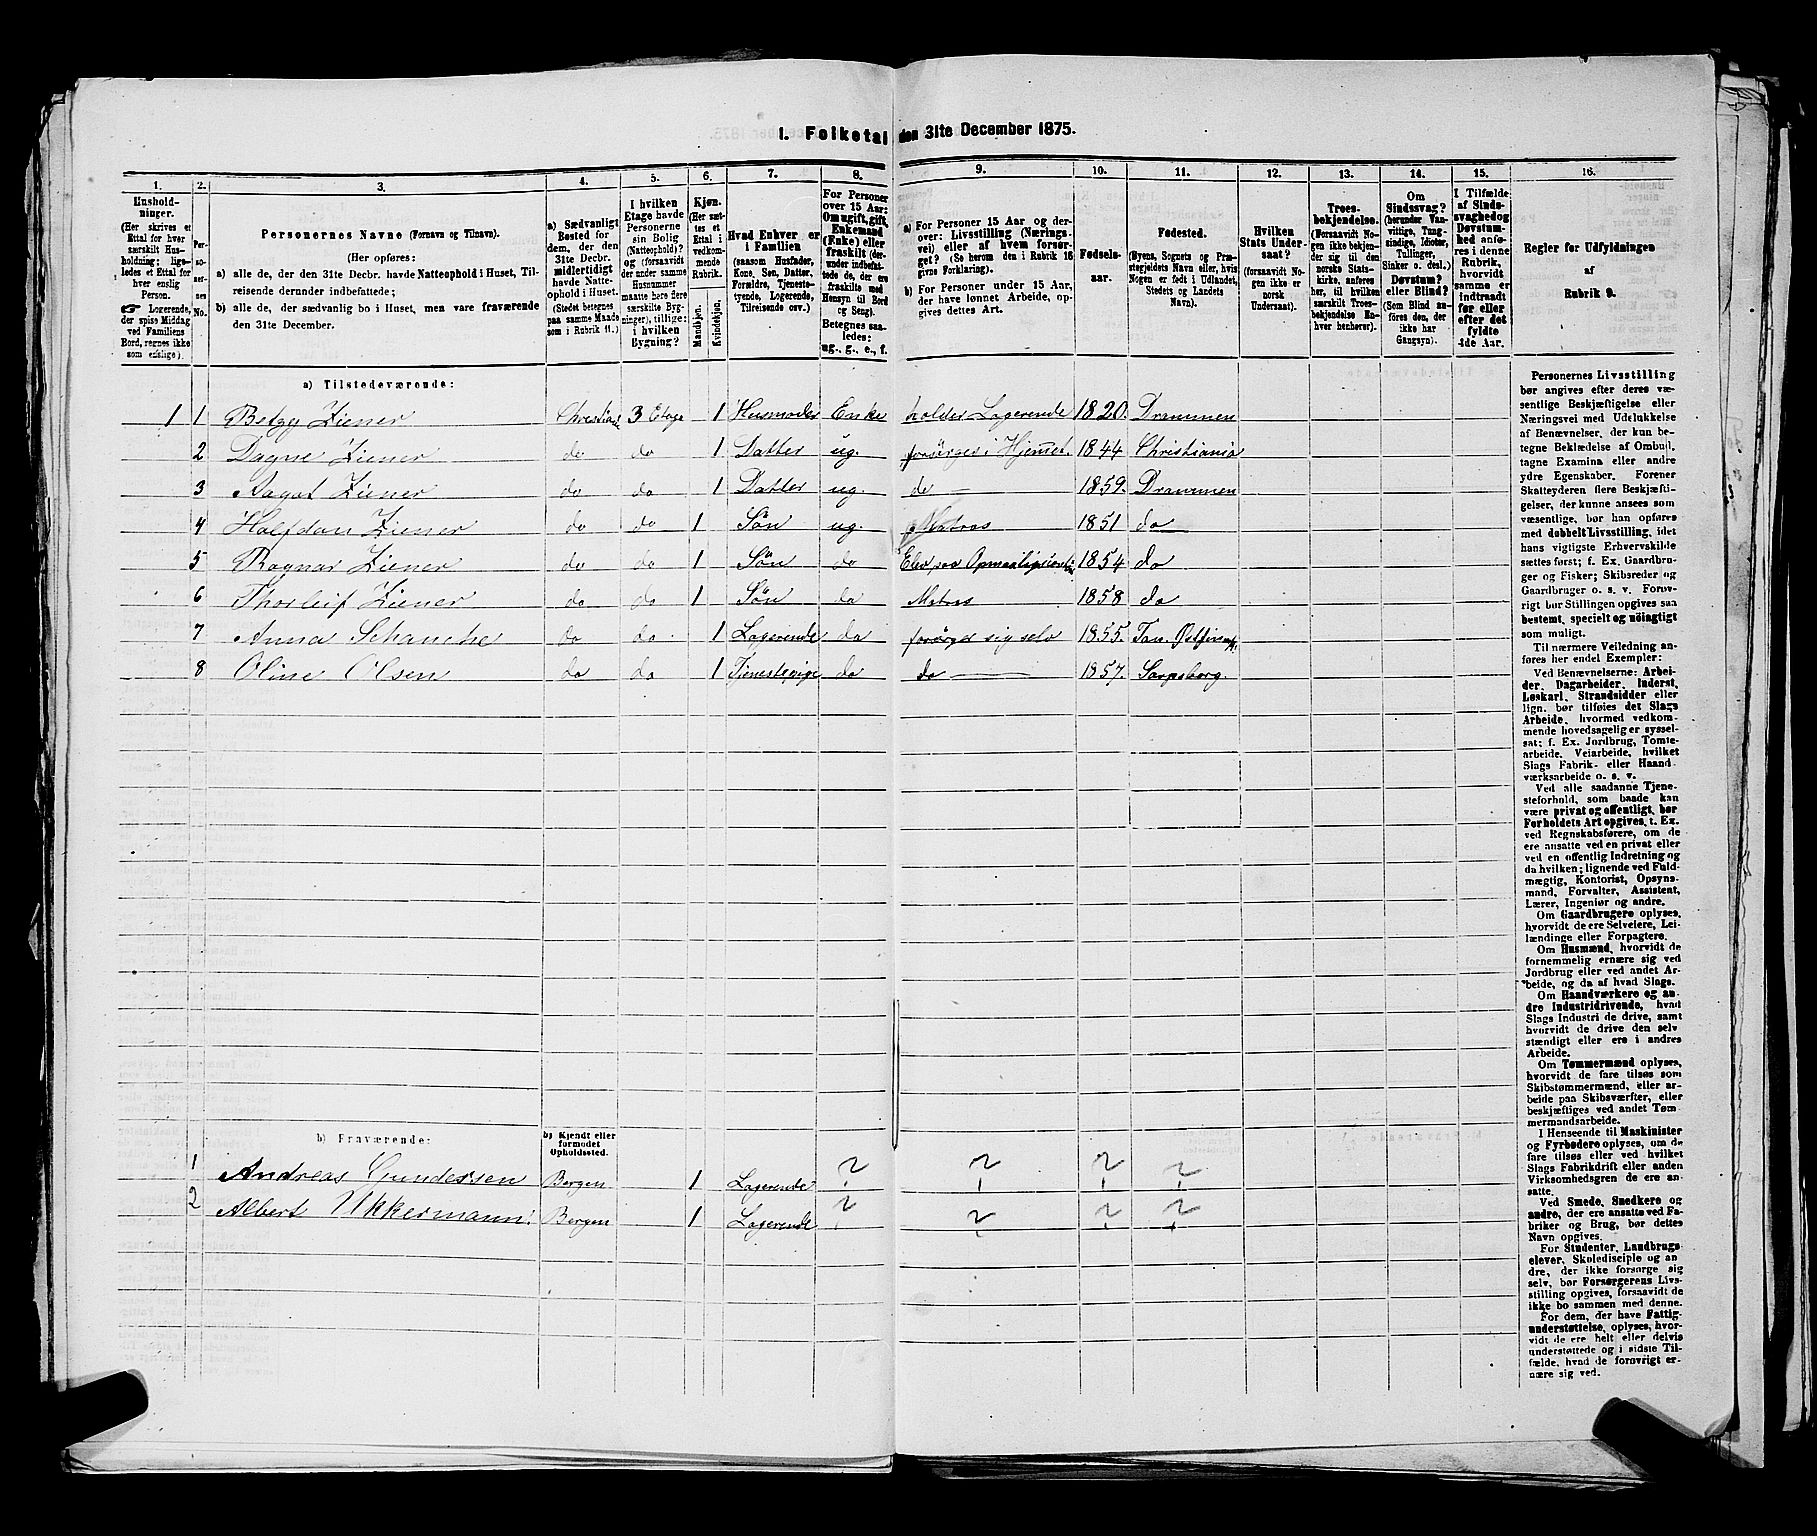 1. Folketal den 31te December 1875.
1. 2. 3. 4. 5. 6. 7. 8. 9. 10. 11. 12. 13. 14. 15. 16.
Husholdninger.
(Her skrives et
Ettal for hver
særskilt Husholdning;
ligeledes et Ettal for
hver enslig
Person.
Logerende,
der spise Middag
ved Familiens
Bord, regnes ikke
som enslige).
Personernes No.
Personernes Navne (Fornavn og Tilnavn).
(Her opføres:
a) alle de, der den 31te Decbr. havde Natteophold i Huset, Tilreisende derunder indbefattede;
b) alle de, der sædvanlig bo i Huset, men vare fraværende
den 31te December.
a) Sædvanligt
Bosted for
dem, der den
31te Decbr.
midlertidigt
havde Natteophold
i Huset.
(Stedet betegnes
paa samme Maade
som i Rubrik 11.)
I hvilken
Etage havde
Personerne
sin Bolig
(Natteophold)?
og (forsaavidt
der under samme
Husnummer
maatte høre flere
særskilte Bygninger),
tillige:
i hvilken
Bygning?
Kjøn.
(Her sættes
et Ettal i
vedkommende
Rubrik.
Mandkjøn.
Kvindekjøn.
Hvad Enhver er
i Familien
(saasom Husfader,
Kone, Søn, Datter,
Forældre, Tjenestetyende,
Logerende,
Tilreisende osv.)
For Personer
over 15 Aar:
Om ugift, gift,
Enkemand
(Enke) eller
fraskilt (derunder
indbefattede
de, der ere
fraskilte med
Hensyn til Bord
og Seng).
Betegnes saaledes:
ug., g., e., f.
a) For Personer 15 Aar og derover:
Livsstilling (Næringsvei)
eller af hvem forsørget?
(Se herom den i Rubrik 16
givne Forklaring).
b) For Personer under 15 Aar,
der have lønnet Arbeide, opgives
dettes Art.
Fødselsaar.
Fødested.
(Byens, Sognets og Præstegjeldets
Navn eller, hvis
Nogen er født i Udlandet,
Stedets og Landets
Navn).
Hvilken
Stats Undersaat?
(forsaavidt Nogen
ikke er
norsk
Undersaat).
Troesbekjendelse.
(Forsaavidt Nogen
ikke bekjender
sig til den
norske Statskirke,
anføres
her, til hvilken
særskilt Troesbekjendelse
Enhver
henhører).
Om
Sindssvag?
(herunder Vanvittige,
Tungsindige,
Idioter,
Tullinger,
Sinker o. desl.)
Døvstum?
eller Blind?
(Som Blind anføres
den, der
ikke har
Gangsyn).
I Tilfælde
af Sindssvaghed
og
Døvstumhed
anføres
i denne
Rubrik,
hvorvidt
samme er
indtraadt
før eller
efter det
fyldte
4de Aar.
Regler for Udfyldningen
af
Rubrik 9.
a) Tilstedeværende:
1 1 Betzy Ziener Christiania 3 Etage 1 Husmoder Enke holder Logerende 1820. Drammen
2 Dagne Ziener do do 1 Datter ug. forsörges i Hjemmet. 1844 Christiania
3 Aagot Ziener do do 1 Datter ug. do — 1859. Drammen
4 Halfdan Ziener do do 1 Sön ug. Matros 1851 do
5 Ragnar Ziener do do 1 Sön do Elev paa 1854 do
6 Thorleif Ziener do do 1 Sön do Matros 1858 do
7 Anna Schanche do do 1 Logerende do forsörger sig selv 1855. Tan.
8 Oline Olsen do do 1 Tjenestepige do do — 1857. Sarpsborg.
b) Fraværende:
b) Kjendt eller
formodet
Opholdssted.
1 Andreas Gundersen Bergen 1 Logerende ? ? ? ?
2 Albert Ukkermann Bergen 1 Logerende ? ? ? ?
Personernes Livsstilling
bør angives efter deres væsentlige
Beskjæftigelse eller
Næringsvei med Udelukkelse
af Benævnelser, der kun betegne
Beklædelse af Ombud,
tagne Examina eller andre
ydre Egenskaber. Forener
Skatteyderen flere Beskjæftigelser,
der kunne ansees som
væsentlige, bør han opføres
med dobbelt Livsstilling, idet
hans vigtigste Erhvervskilde
sættes først; f. Ex. Gaardbruger
og Fisker; Skibsreder og
Gaardbruger o. s. v. Forøvrigt
bør Stillingen opgives saa
bestemt, specielt og nøiagtigt
som muligt.
Til nærmere Veiledning anføres
her endel Exempler:
Ved Benævnelserne: Arbeider,
Dagarbeider, Inderst,
Løskarl, Strandsidder eller
lign. bør tilføies det Slags
Arbeide, hvormed vedkommende
hovedsagelig er sysselsat;
f. Ex. Jordbrug, Tomtearbeide,
Veiarbeide, hvilket
Slags Fabrik- eller Haandværksarbeide
o. s. v.
Ved alle saadanne Tjenesteforhold,
som baade kan
være privat og offentligt, bør
Forholdets Art opgives, t. Ex.
ved Regnskabsførere, om de
ere ansatte ved en privat eller
ved en offentlig Indretning og
da hvilken; lignende ved Fuldmægtig,
Kontorist, Opsynsmand,
Forvalter, Assistent,
Lærer, Ingeniør og andre.
Om Gaardbrugere oplyses,
hvorvidt de ere Selveiere, Leilændinge
eller Forpagtere.
Om Husmænd, hvorvidt de
fornemmelig ernære sig ved
Jordbrug eller ved andet Arbeide,
og da af hvad Slags.
Om Haandværkere og andre
Industridrivende, hvad
Slags Industri de drive, samt
hvorvidt de drive den selvstændigt
eller ere i andres
Arbeide.
Om Tømmermænd oplyses,
hvorvidt de fare tilsøs som
Skibstømmermænd, eller arbeide
paa Skibsværfter, eller
beskjæftiges ved andet Tømmermandsarbeide.
I Henseende til Maskinister
og Fyrbødere oplyses, om de
fare tilsøs eller ved hvilket
Slags Fabrikdrift eller anden
Virksomhedsgren de ere ansatte.
Ved Smede, Snedkere og
andre, der ere ansatte ved Fabriker
og Brug, bør dettes
Navn opgives.
For Studenter, Landbrugselever,
Skoledisciple og andre,
der ikke forsørge sig
selv, bør Forsørgerens Livsstilling
opgives, forsaavidt de
ikke bo sammen med denne.
For dem, der have Fattigunderstøttelse,
oplyses, hvorvidt
de ere helt eller delvis
understøttede og i sidste Tilfælde,
hvad de forøvrigt ernære
sig ved.